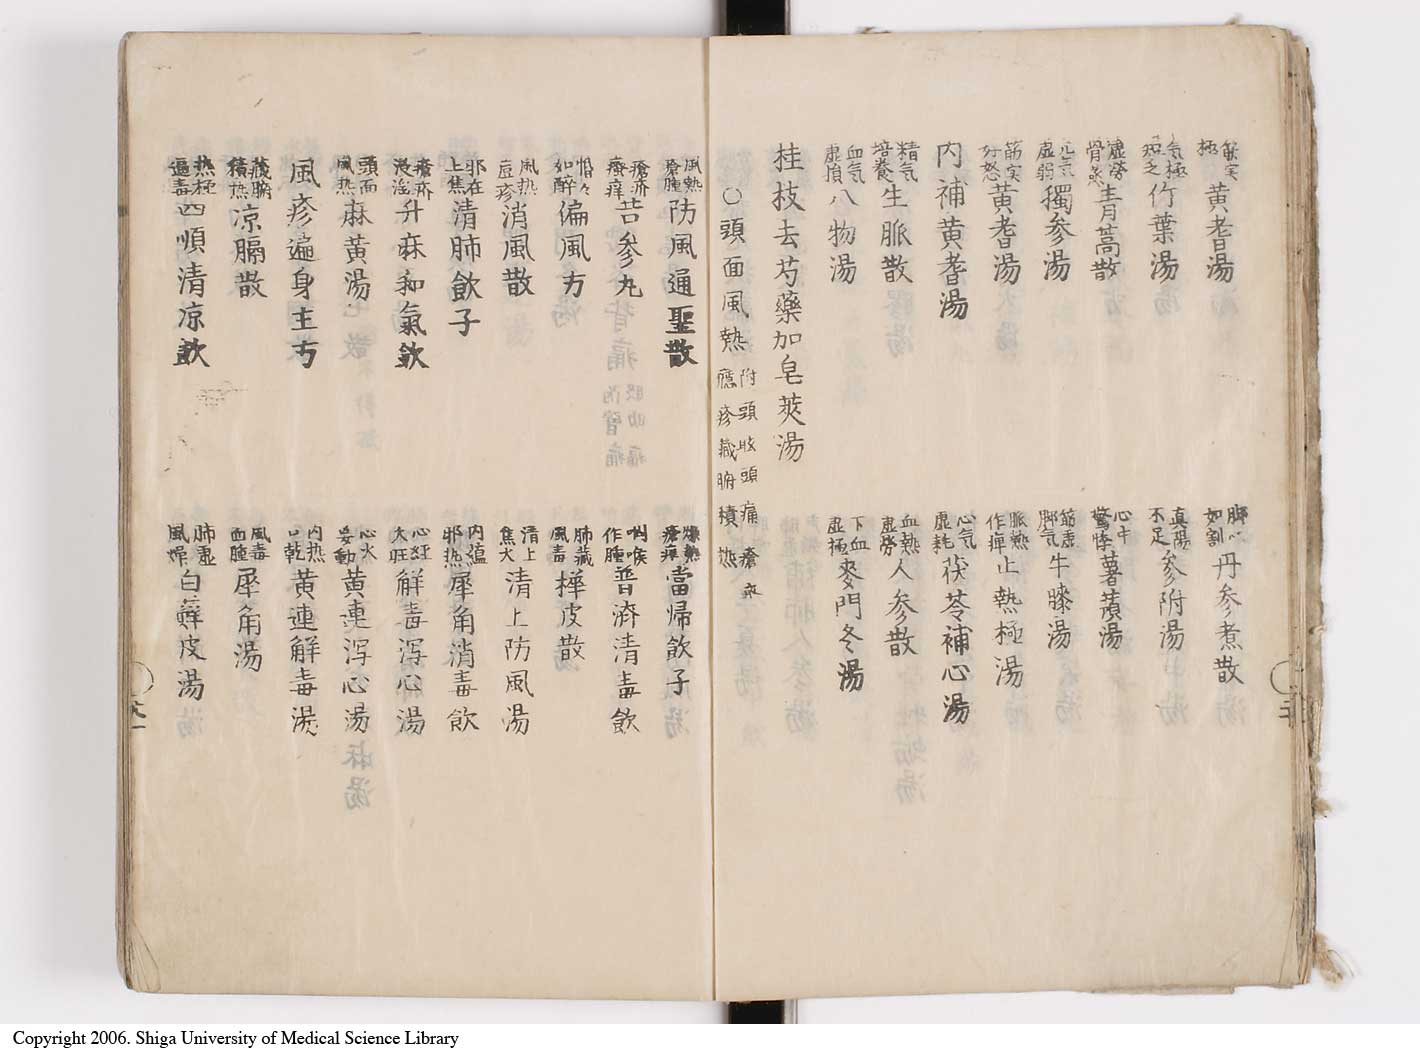 筋実極 黄耆湯
脚心如割 丹参煮散
気極短乏 竹葉湯
真陽不足 参附湯
虚労骨蒸 青蒿散
心中驚悸 薯蕷湯
元気虚弱 獨参湯
筋虚脚気 牛膝湯
筋実好怒 黄耆湯
脈熱作痺 止熱極湯
内補黄耆湯
心気虚耗 茯苓補心湯
精気培養 生脈散
血熱虚労 人参散
血気虚損 八物湯
下血虚極 麥門冬湯
桂枝去芍藥加皂莢湯
○頭面風熱 附頭眩頭痛瘡疥癮疹藏腑積热
風熱瘡腫 防風通聖散
燥熱瘡痒 當帰飲子
瘡疥瘙痒 苦参丸
咽喉作腫 普濟清毒飲
惛々如醉 偏風方
肺藏風毒 樺皮散
風热㾦疹 消風散
清上焦火 清上防風湯
邪在上焦 清肺飲子
内蕴邪热 犀角消毒飲
瘡疥浸淫 升麻和氣飲
心経火旺 解毒泻心湯
頭面風热 麻黄湯
心火妄動 黄連泻心湯
風疹遍身主方
内热口乾 黄連解毒湯
藏腑積热 凉膈散
風毒血腫 犀角湯
热極遍毒 四順清凉飲
肺虚風燥 白蘚皮湯
Copyright 2006. Shiga University of Medical Science Library